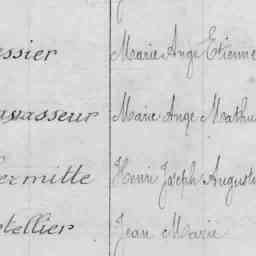 essier Marie Ange Etienne
avasseur Marie Ange Mathu
ermitte Henri Joseph Augusti
tellier Jean Marie